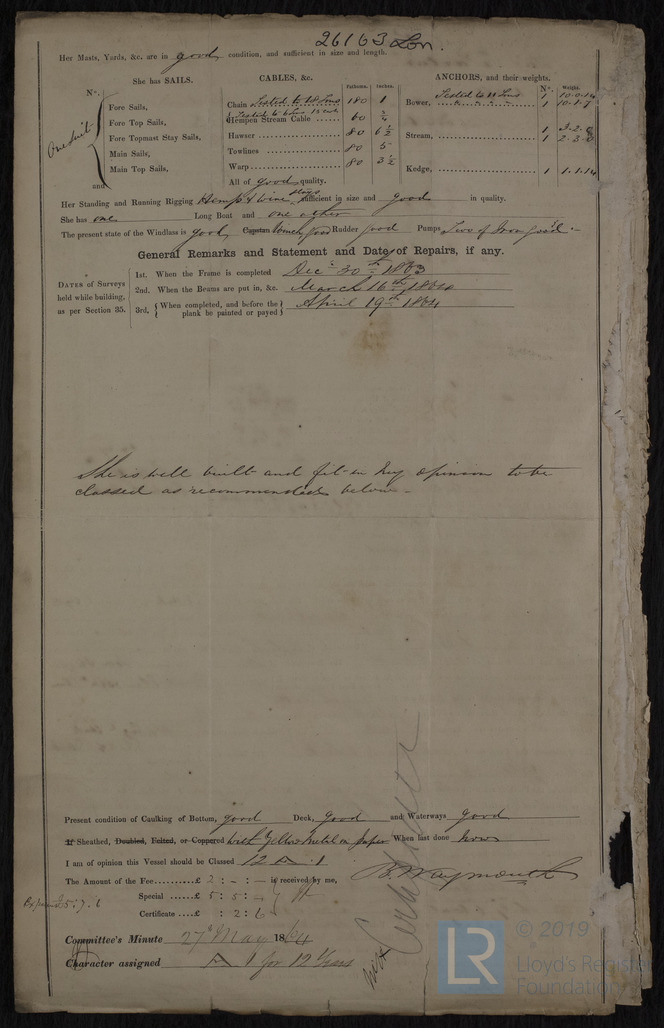 26163 Lon.
Her Masts, Yards, &c. are in good condition, and sufficient in size and length.
She has SAILS.
N°.
One suit
Fore Sails,
Fore Top Sails,
Fore Topmast Stay Sails,
Main Sails,
Main Top Sails,
and
CABLES, &c.
Fathoms. Inches.
Chain Tested to 18 Tons 180 1
Hempen Stream Cable 60 3/4
Hawser 80 6 1/2
Towlines 80 5
Warp 80 3 1/2
All of good quality.
ANCHORS, and their weights.
N°. Weight.
Tested to 11 Tons
Bower, 1 10.0.14
1 10.1.7
Stream, 1 3.2.0
1 2.3.0
Kedge, 1 1.1.14
Her Standing and Running Rigging Hemp & wire sufficient in size and good in quality.
She has one Long Boat and one other
The present state of the Windlass is good Capstan Winch good Rudder good Pumps Two of Iron good
General Remarks and Statement and Date of Repairs, if any.
DATES of Surveys held while building, as per Section 35.
1st. When the Frame is completed Decr 30th 1863
2nd. When the Beams are put in, &c. March 16th 1864
3rd. { When completed, and before the plank be painted or payed } April 19th 1864
She is well built and fit in my opinion to be
classed as recommended below
Present condition of Caulking of Bottom, good Deck, good and Waterways good
If Sheathed, Doubled, Felted, or Coppered with Yellow Metal on paper When last done Now
I am of opinion this Vessel should be Classed 12 A 1
The Amount of the Fee £ 2 : - : - is received by me, B. Waymouth
Special £ 5 : 5 : -
Certificate £ : 2 : 6
Committee's Minute 27th May 1864
Character assigned A 1 for 12 Years
© 2019
LR
Lloyd's Register
Foundation